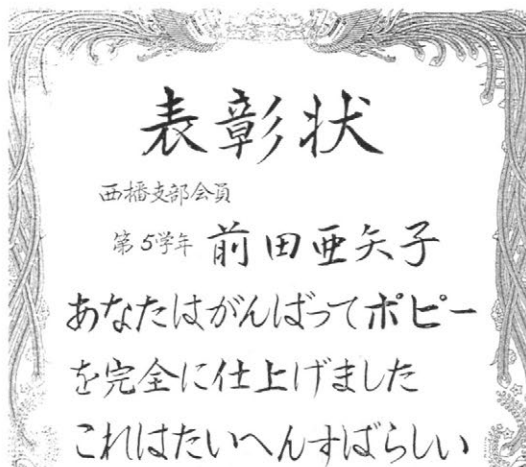 表彰状
西播支部会員
第5学年 前田亜矢子
あなたはがんばってポピー
を完全に仕上げました
これはたいへんすばらしい